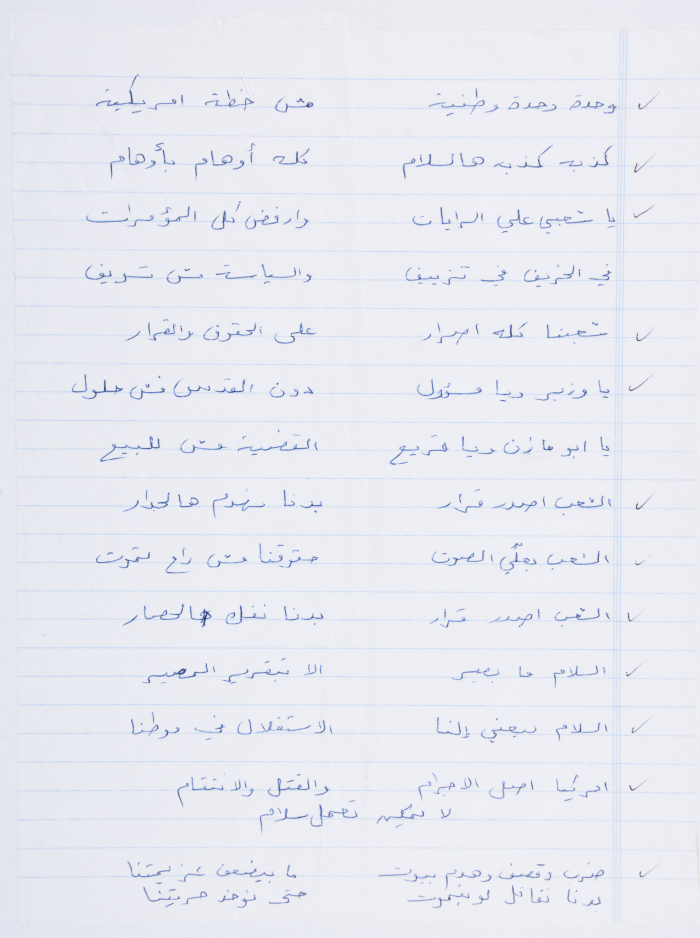 وحدة وحدة وطنية مش خطة امريكية
كذبه كذبه هالسلام كله أوهام بأوهام
يا شعبي علي الرايات وارفض كل المؤمرات
في الخريف في تزييف والسياسة مش تسويف
شعبنا كله اصرار على الحقوق والقرار
يا وزير ويا مسؤول دون القدس فش حلول
يا ابو مازن ويا قريع القضية مش للبيع
الشعب اصدر قرار بدنا نهدم هالجدار
الشعب بعلّي الصوت حقوقنا مش راح تموت
الشعب اصدر قرار بدنا نفك هالحصار
السلام ما بصير الا بتقرير المصير
السلام بيعني إلنا الاستقلال في موطنا
امركيا اصل الاجرام والقتل والانتقام
لا يمكن تعمل سلام
ضرب وقصف وهدم بيوت ما بيضعف عزيمتنا
بدنا نقاتل لو بنموت حتى نوخذ حريتنا